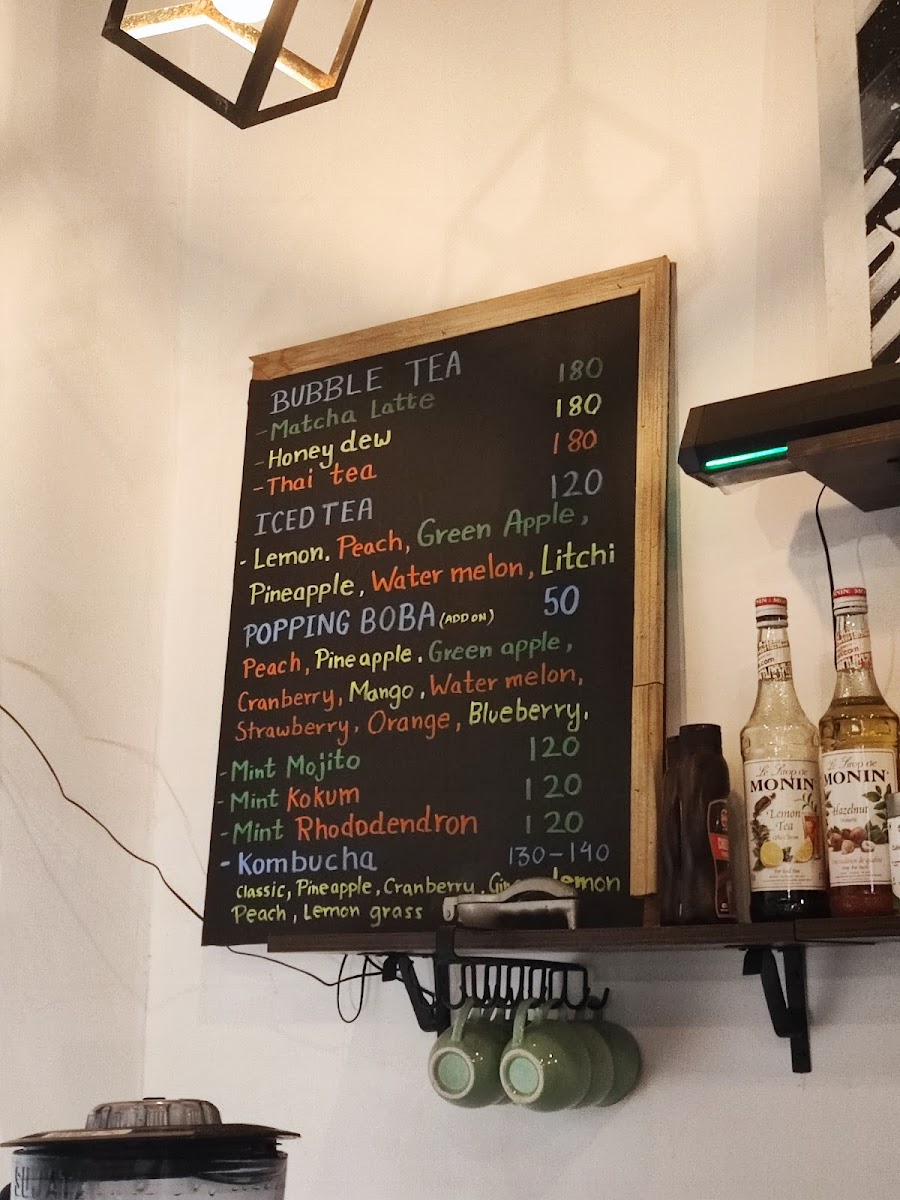 BUBBLE TEA
- Matcha Latte 180
- Honey dew 180
- Thai tea 180
ICED TEA 120
- Lemon. Peach, Green Apple,
Pineapple, Water melon, Litchi
POPPING BOBA (ADD ON) 50
Peach, Pineapple, Green apple,
Cranberry, Mango, Water melon,
Strawberry, Orange, Blueberry,
- Mint Mojito 120
- Mint Kokum 120
- Mint Rhododendron 120
- Kombucha 130-140
classic, Pineapple, Cranberry, lemon
Peach, Lemon grass
Le Sirop de
MONIN
Lemon
Tea
Le Sirop de
MONIN
Hazelnut
SUJATA